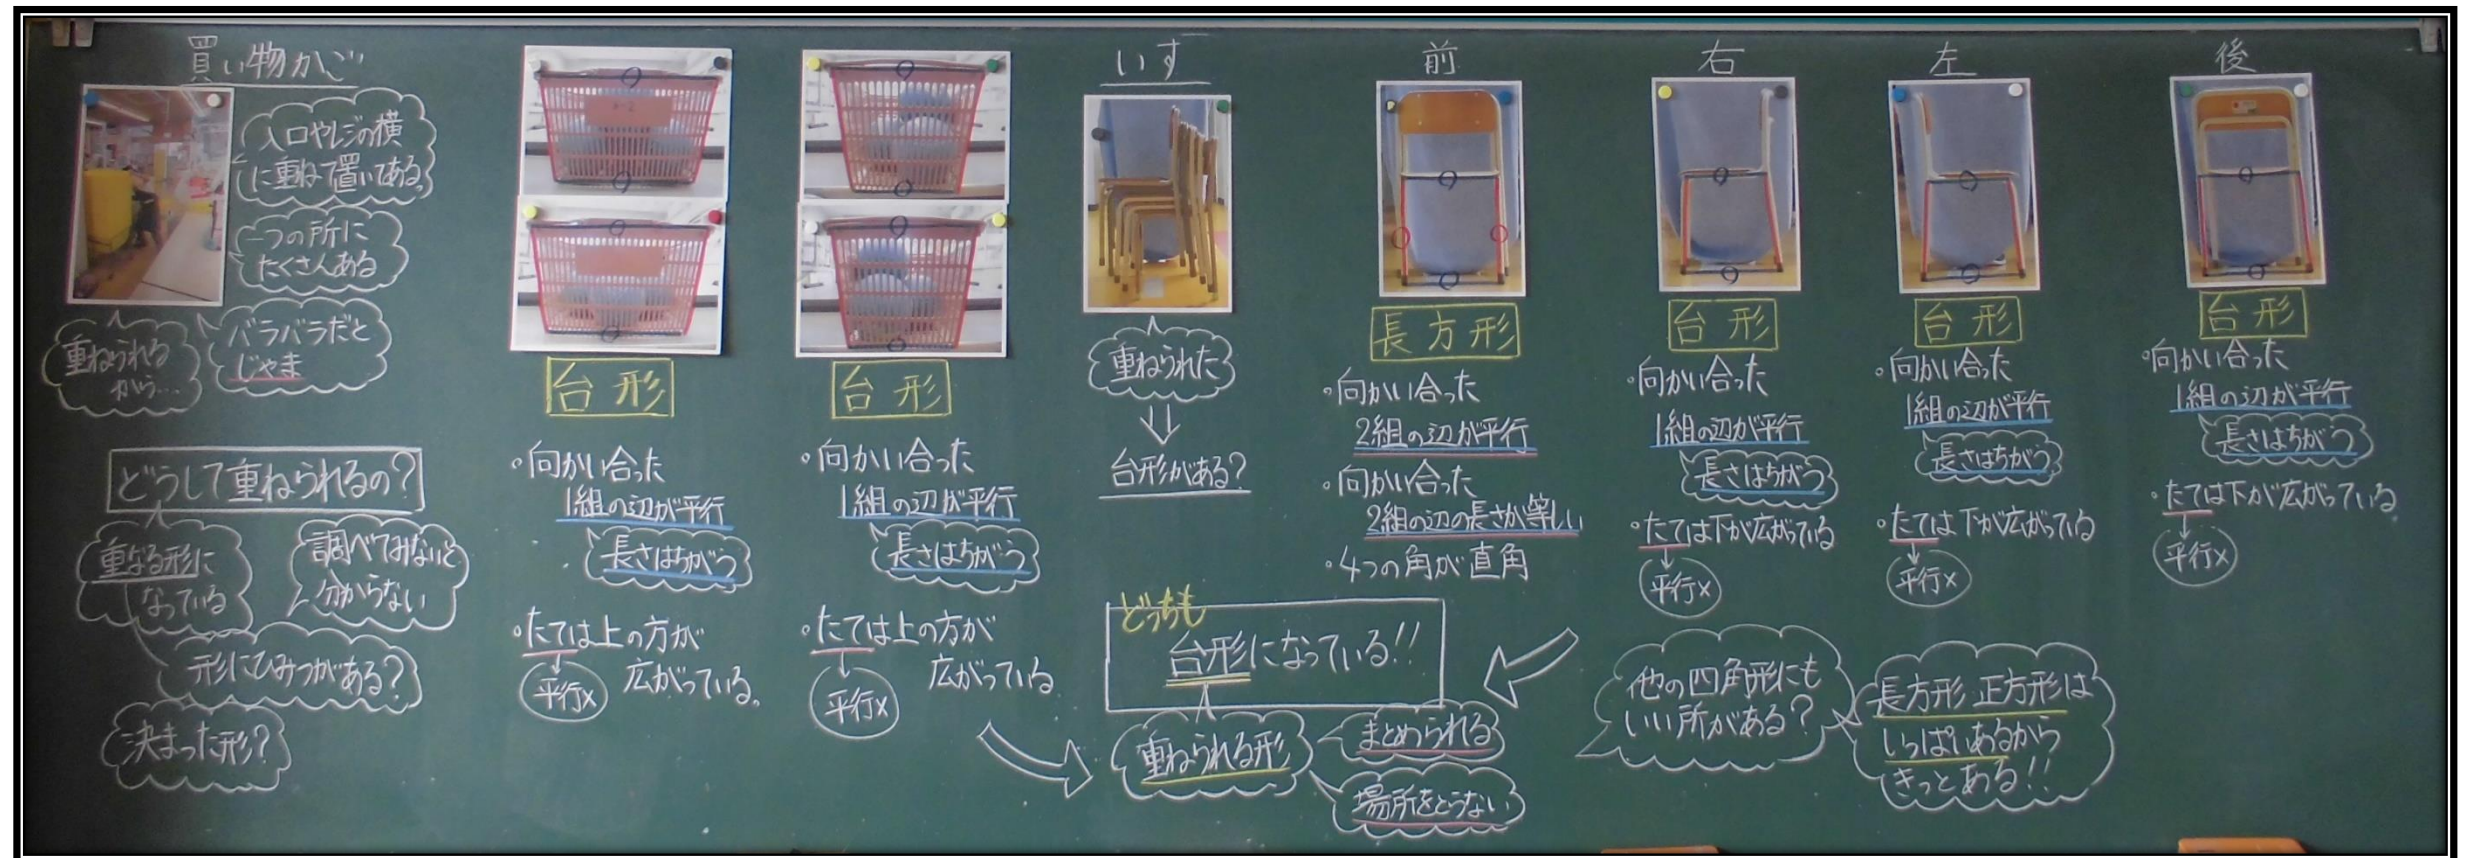 買い物かご
入口やレジの横
に重ねて置いてある。
一つの所に
たくさんある
バラバラだと
じゃま
重ねられる
から…
どうして重ねられるの?
重なる形に
なっている
調べてみないと
分からない
形にひみつがある?
決まった形?
台形
・向かい合った
1組の辺が平行
長さはちがう
・たては上の方が
広がっている。
平行×
台形
・向かい合った
1組の辺が平行
長さはちがう
・たては上の方が
広がっている
平行×
いす
重ねられた
台形がある?
前
長方形
・向かい合った
2組の辺が平行
・向かい合った
2組の辺の長さが等しい
・4つの角が直角
右
台形
・向かい合った
1組の辺が平行
長さはちがう
・たては下が広がっている
平行×
左
台形
・向かい合った
1組の辺が平行
長さはちがう
・たては下が広がっている
平行×
後
台形
・向かい合った
1組の辺が平行
長さはちがう
・たては下が広がっている。
平行×
どっちも
台形になっている!!
重ねられる形
まとめられる
場所をとらない
他の四角形にも
いい所がある?
長方形 正方形は
いっぱいあるから
きっとある!!